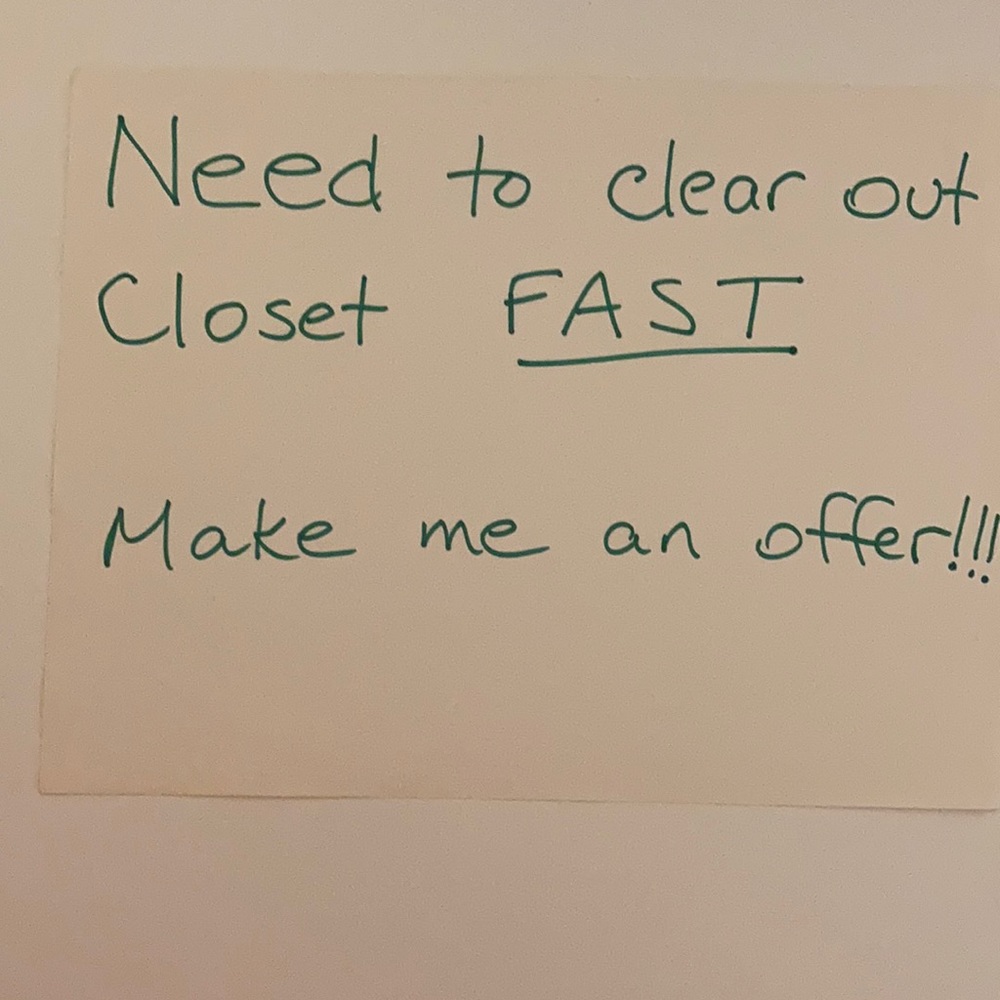 Need to clear out
Closet FAST
Make me an offer!!!